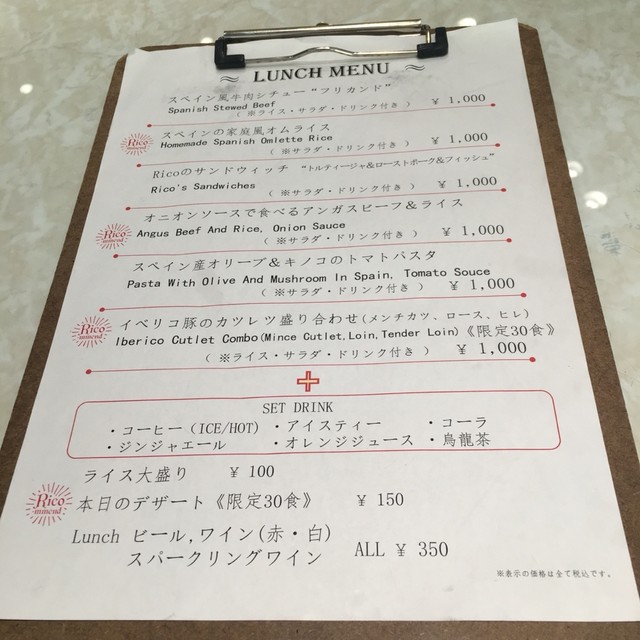 LUNCH MENU
スペイン風牛肉シチュー“フリカンド”
Spanish Stewed Beef
( ※ライス・サラダ・ドリンク付き ) ¥ 1,000
Rico mmend
スペインの家庭風オムライス
Homemade Spanish Omlette Rice
( ※サラダ・ドリンク付き ) ¥ 1,000
Ricoのサンドウィッチ “トルティージャ&ローストポーク&フィッシュ”
Rico's Sandwiches ( ※サラダ・ドリンク付き ) ¥ 1,000
Rico mmend
オニオンソースで食べるアンガスビーフ&ライス
Angus Beef And Rice, Onion Sauce
( ※サラダ・ドリンク付き ) ¥ 1,000
スペイン産オリーブ&キノコのトマトパスタ
Pasta With Olive And Mushroom In Spain, Tomato Souce
( ※サラダ・ドリンク付き ) ¥ 1,000
Rico mmend
イベリコ豚のカツレツ盛り合わせ(メンチカツ、ロース、ヒレ)
Iberico Cutlet Combo(Mince Cutlet,Loin,Tender Loin)《限定30食》
( ※ライス・サラダ・ドリンク付き ) ¥ 1,000
+
SET DRINK
・コーヒー(ICE/HOT) ・アイスティー ・コーラ
・ジンジャエール ・オレンジジュース ・烏龍茶
ライス大盛り ¥ 100
Rico mmend
本日のデザート《限定30食》 ¥ 150
Lunch ビール,ワイン(赤・白)
スパークリングワイン ALL ¥ 350
※表示の価格は全て税込です。